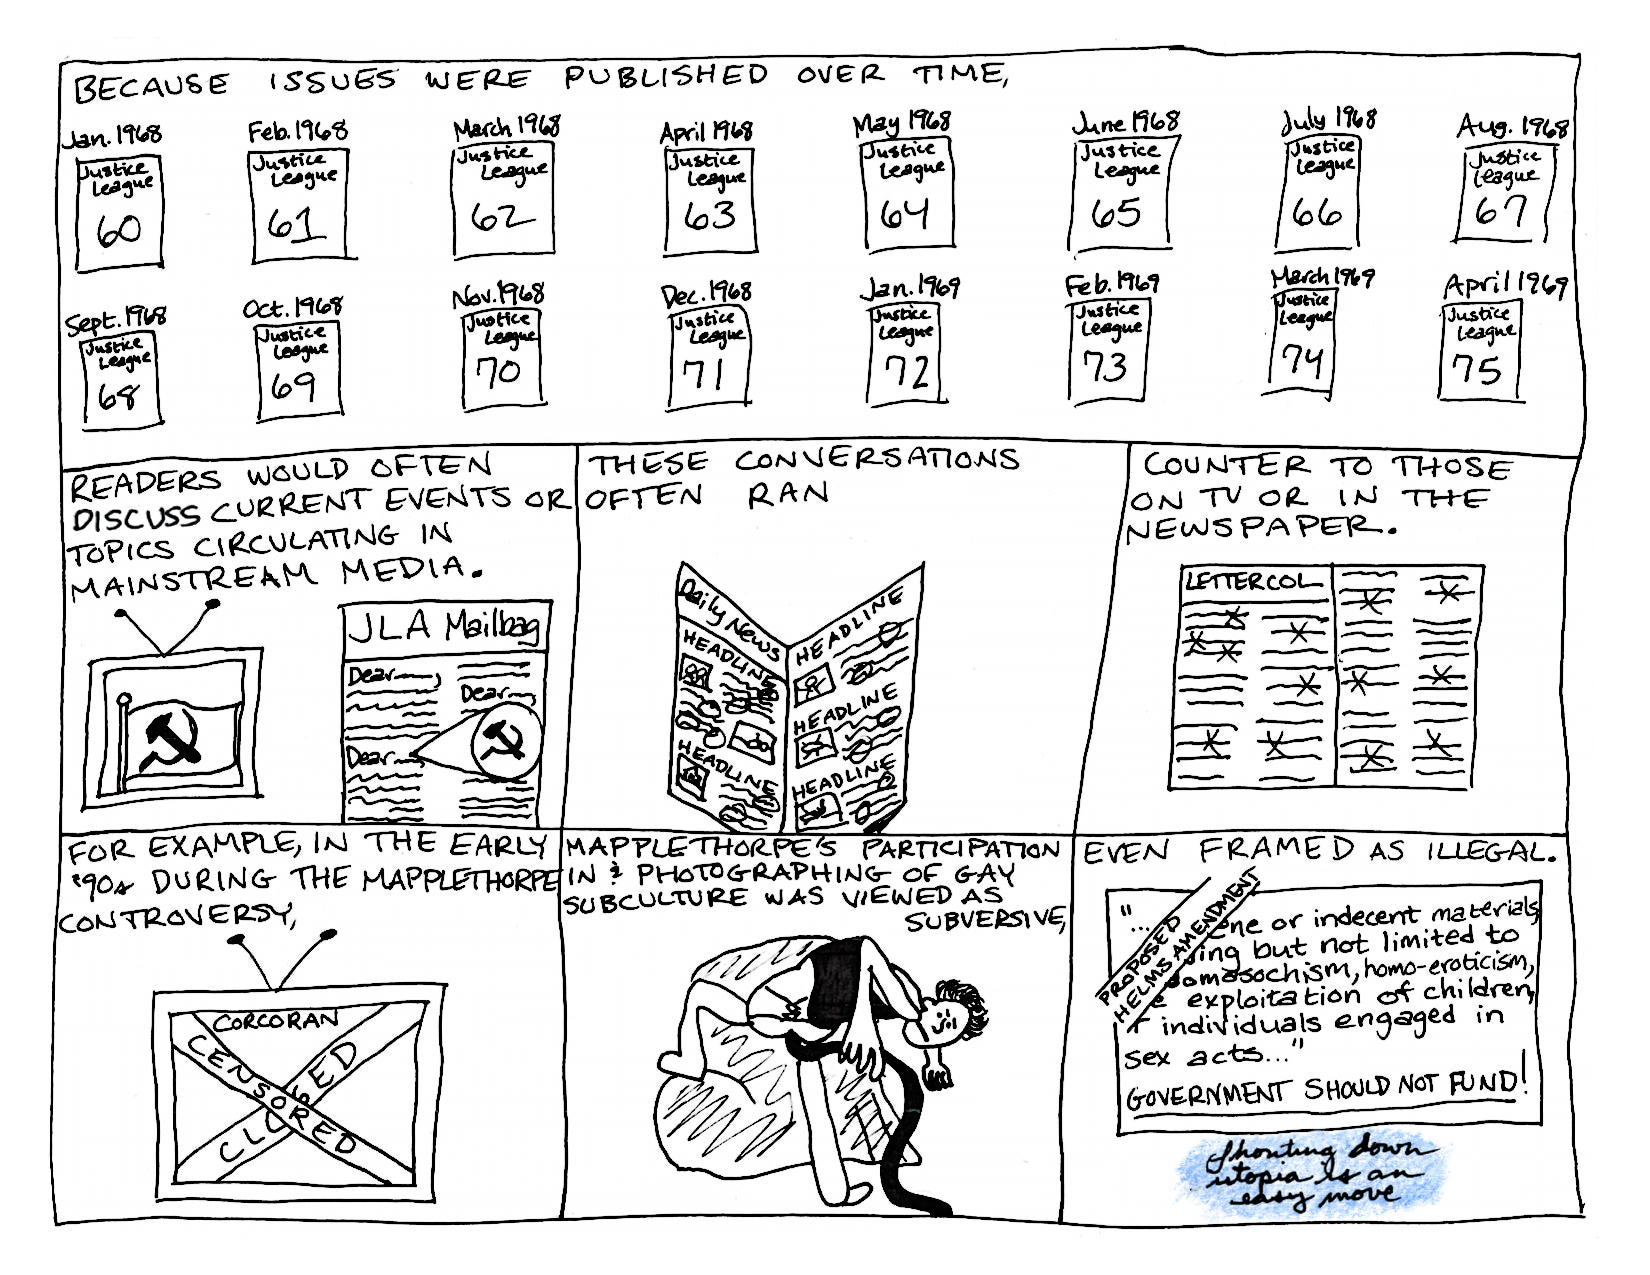 BECAUSE ISSUES WERE PUBLISHED OVER TIME,
Jan. 1968
Justice
League
60
Feb. 1968
Justice
League
61
March 1968
Justice
League
62
April 1968
Justice
League
63
May 1968
Justice
League
64
June 1968
Justice
League
65
July 1968
Justice
League
66
Aug. 1968
Justice
League
67
Sept. 1968
Justice
League
68
Oct. 1968
Justice
League
69
Nov. 1968
Justice
League
70
Dec. 1968
Justice
League
71
Jan. 1969
Justice
League
72
Feb. 1969
Justice
League
73
March 1969
Justice
League
74
April 1969
Justice
League
75
READERS WOULD OFTEN
DISCUSS CURRENT EVENTS OR
TOPICS CIRCULATING IN
MAINSTREAM MEDIA.
JLA Mailbag
Dear
Dear
Dear
THESE CONVERSATIONS
OFTEN RAN
Daily News
HEADLINE
HEADLINE
HEADLINE
HEADLINE
HEADLINE
COUNTER TO THOSE
ON TV OR IN THE
NEWSPAPER.
LETTERCOL
FOR EXAMPLE, IN THE EARLY
'90s DURING THE MAPPLETHORPE
CONTROVERSY,
CORCORAN
CENSORED
CLOSED
MAPPLETHORPE'S PARTICIPATION
IN & PHOTOGRAPHING OF GAY
SUBCULTURE WAS VIEWED AS
SUBVERSIVE,
EVEN FRAMED AS ILLEGAL.
PROPOSED
HELMS AMENDMENT
"... ene or indecent materials,
ing but not limited to
omasochism, homo-eroticism,
e exploitation of children,
r individuals engaged in
sex acts..."
GOVERNMENT SHOULD NOT FUND!
Shouting down
utopia is an
easy move